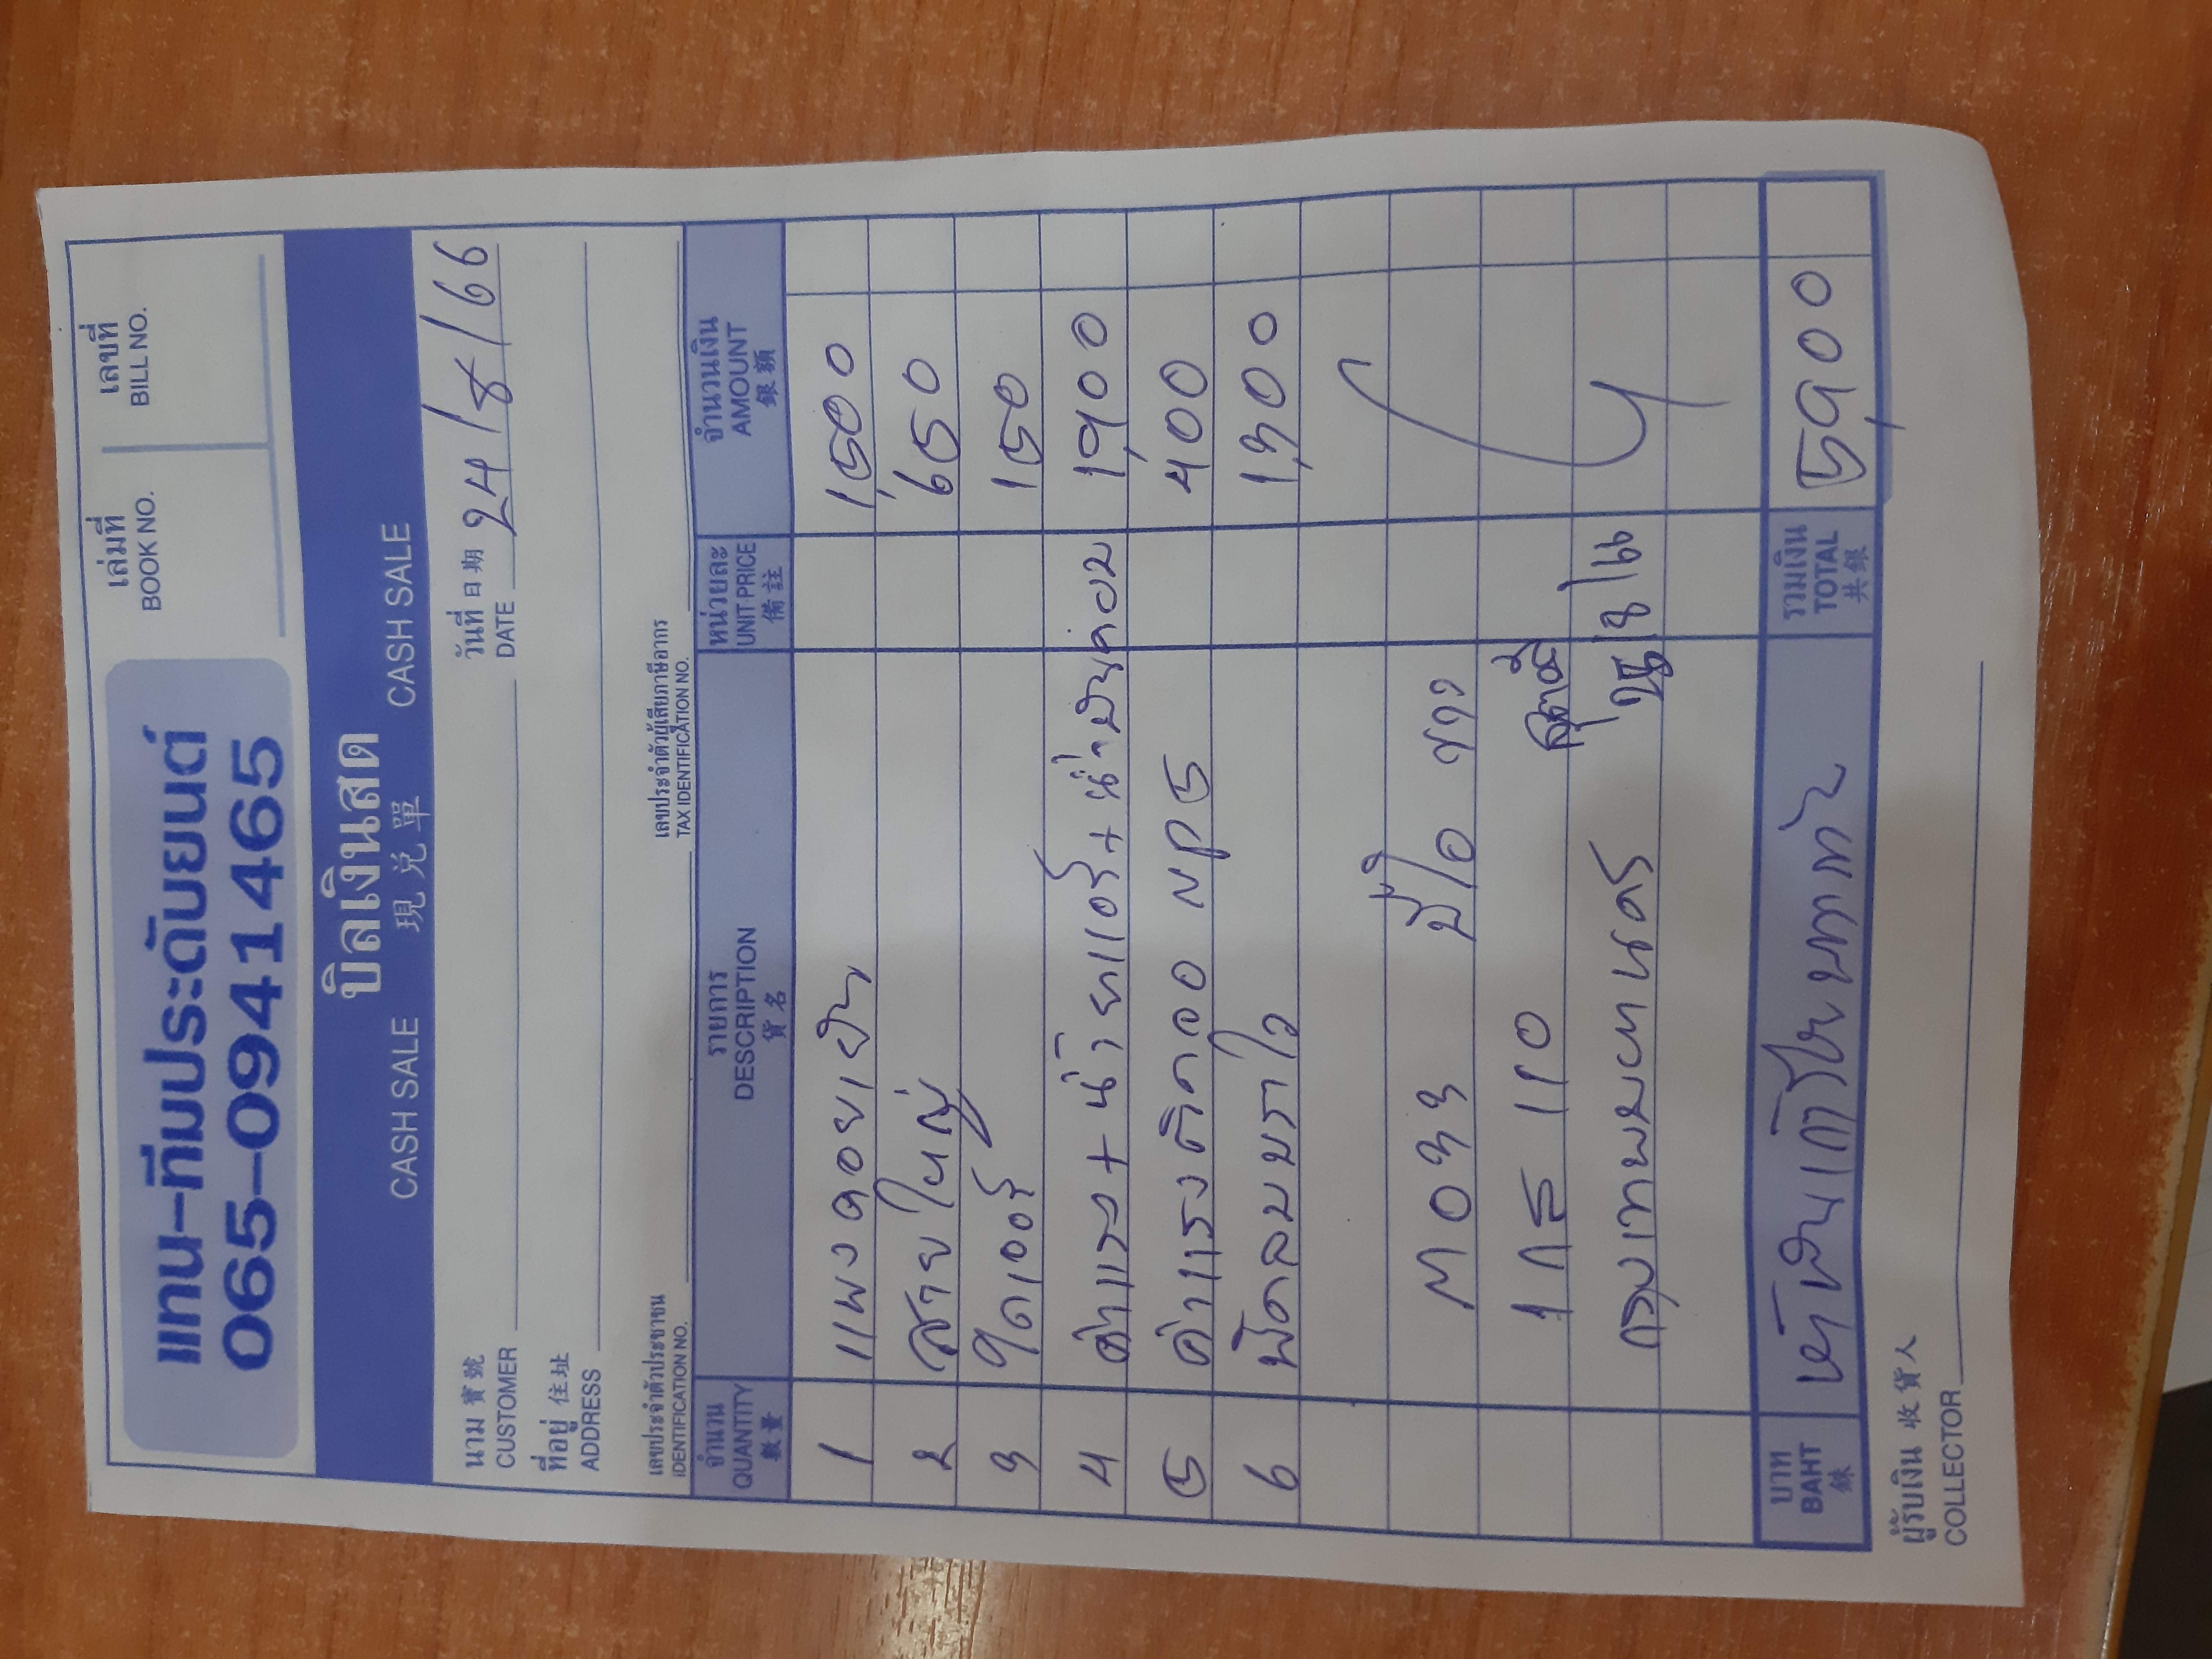 แทน-ทีมประดับยนต์
065-0941465
เล่มที่ เลขที่
BOOK NO. BILL NO.
บิลเงินสด
CASH SALE 現兌單 CASH SALE
นาม 寶號 วันที่ 日期 24/8/66
CUSTOMER DATE
ที่อยู่ 住址
ADDRESS
เลขประจำตัวประชาชน เลขประจำตัวผู้เสียภาษีอากร
IDENTIFICATION NO. TAX IDENTIFICATION NO.
จำนวน รายการ หน่วยละ จำนวนเงิน
QUANTITY DESCRIPTION UNIT PRICE AMOUNT
數量 貨名 備註 銀額
1 แผงคอยเย็น 1,500
2 สายใหญ่ 650
3 ไดเออร์ 150
4 ค่าแรง + น้ำยาแอร์ + น้ำมันคอม 1,900
5 ค่าแรงติคอล NPS 400
6 พัดลมบราโว 1,300
M033
1กธ 110
กรุงเทพมหานคร
บาท ห้าพันเก้าร้อยบาทถ้วน รวมเงิน 5,900
BAHT TOTAL
銖 共銀
ผู้รับเงิน 收貨人
COLLECTOR